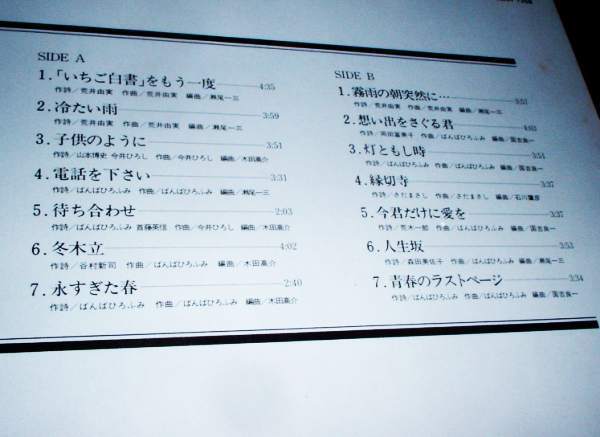 SIDE A
1.「いちご白書」をもう一度 4:35
作詩／荒井由実 作曲／荒井由実 編曲／瀬尾一三
2. 冷たい雨 3:59
作詩／荒井由実 作曲／荒井由実 編曲／瀬尾一三
3. 子供のように 3:51
作詩／山本博史 今井ひろし 作曲／今井ひろし 編曲／木田高介
4. 電話を下さい 3:31
作詩／ばんばひろふみ 作曲／ばんばひろふみ 編曲／瀬尾一三
5. 待ち合わせ 2:03
作詩／ばんばひろふみ 首藤英信 作曲／今井ひろし 編曲／木田高介
6. 冬木立 4:02
作詩／谷村新司 作曲／ばんばひろふみ 編曲／木田高介
7. 永すぎた春 2:40
作詩／ばんばひろふみ 作曲／ばんばひろふみ 編曲／木田高介
SIDE B
1. 霧雨の朝突然に… 3:51
作詩／荒井由実 作曲／荒井由実 編曲／瀬尾一三
2. 想い出をさぐる君 4:03
作詩／岡田冨美子 作曲／ばんばひろふみ 編曲／国吉良一
3. 灯ともし時 3:54
作詩／ばんばひろふみ 作曲／ばんばひろふみ 編曲／国吉良一
4. 縁切寺 3:37
作詩／さだまさし 作曲／さだまさし 編曲／石川鷹彦
5. 今君だけに愛を 3:37
作詩／荒木一郎 作曲／ばんばひろふみ 編曲／国吉良一
6. 人生坂 3:53
作詩／森田美佐子 作曲／ばんばひろふみ 編曲／瀬尾一三
7. 青春のラストページ 3:34
作詩／ばんばひろふみ 作曲／ばんばひろふみ 編曲／国吉良一